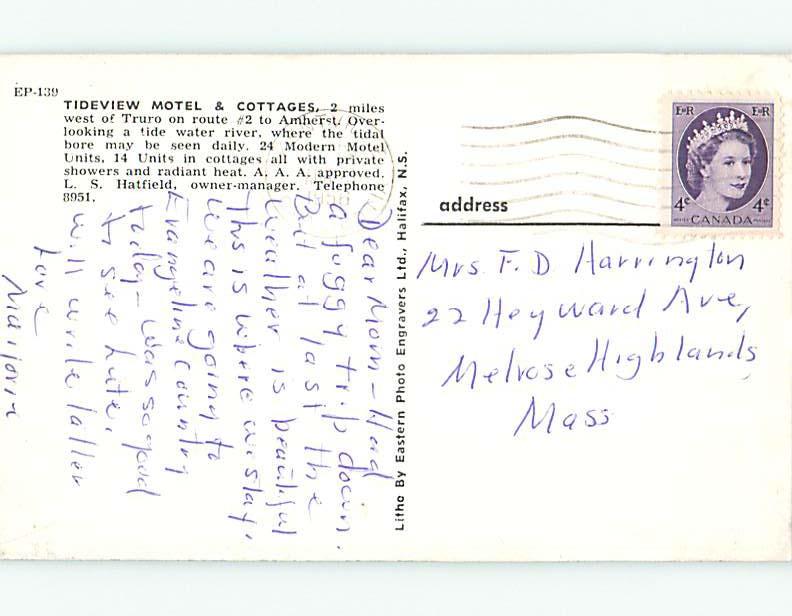 EP-139
TIDEVIEW MOTEL & COTTAGES, 2 miles
west of Truro on route #2 to Amherst. Over-
looking a tide water river, where the tidal
bore may be seen daily. 24 Modern Motel
Units, 14 Units in cottages all with private
showers and radiant heat. A. A. A. approved.
L. S. Hatfield, owner-manager. Telephone
8951.
Dear Mom - Had
a foggy trip down.
But at last the
weather is beautiful
This is where we stay.
We are going to
Evangeline country
today - was so good
to see
will write latter
Love
Marjorie
Litho By Eastern Photo Engravers Ltd., Halifax, N.S.
EIIR EIIR
4¢ CANADA 4¢
address
Mrs. F. D Harrington
22 Heyward Ave,
Melrose Highlands
Mass